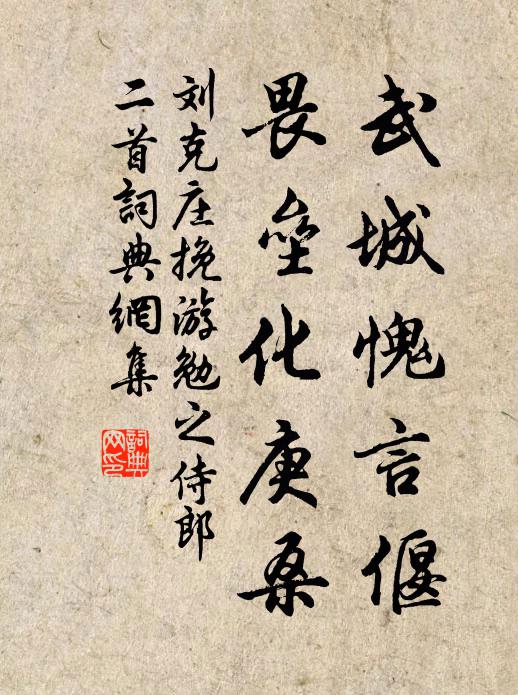 武城愧言偃
畏垒化庚桑
刘克庄挽游勉之侍郎
二首詞典網集
詞典
网印